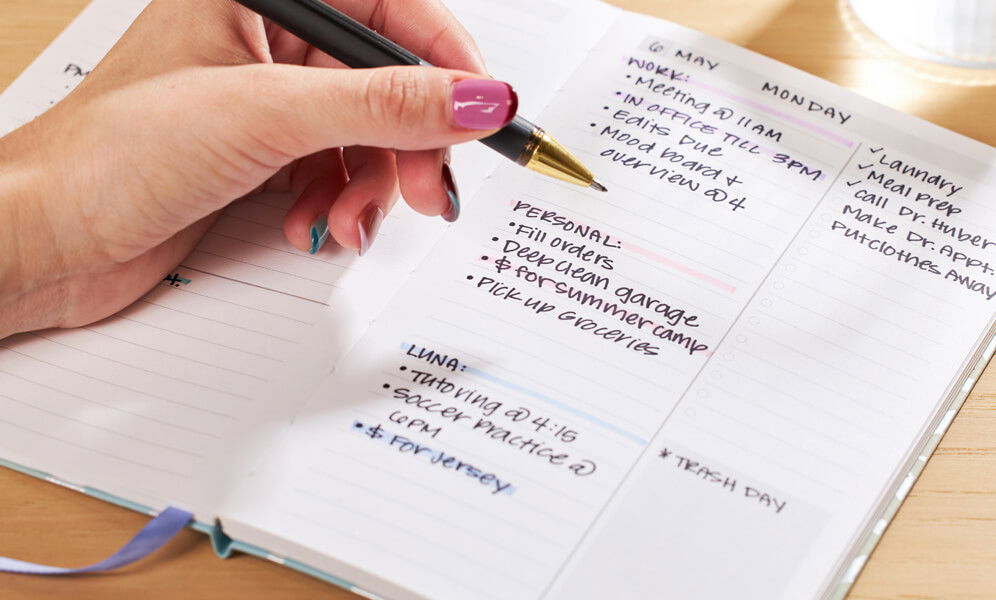 PM
6 MAY
MONDAY
WORK:
• Meeting @ 11AM
• IN OFFICE TILL 3PM
• Edits Due
• Mood board +
overview @ 4
PERSONAL:
• Fill orders
• Deep clean garage
• $ for summer camp
• Pick up Groceries
LUNA:
• Tutoring @ 4:15
• Soccer Practice @
6PM
• $ For Jersey
✓ Laundry
✓ Meal Prep
✓ Call Dr. Huber
Make Dr. Appt.
Put Clothes Away
* TRASH DAY